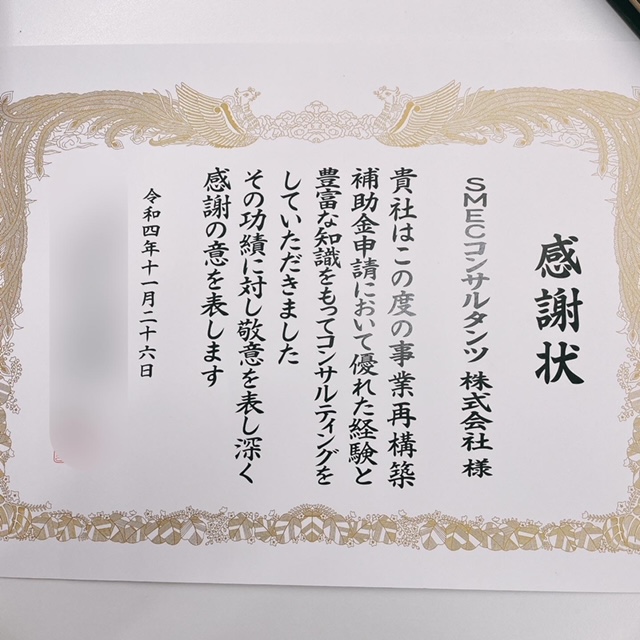 感謝状
SMECコンサルタンツ 株式会社 様
貴社はこの度の事業再構築
補助金申請において優れた経験と
豊富な知識をもってコンサルティングを
していただきました
その功績に対し敬意を表し深く
感謝の意を表します
令和四年十一月二十六日